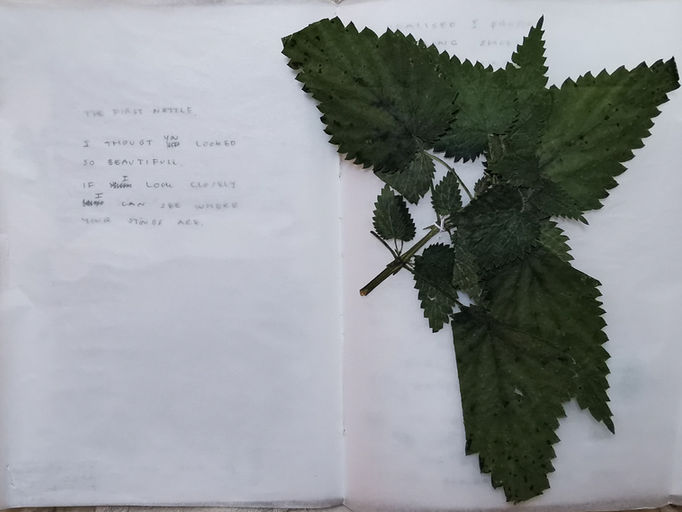 THE FIRST NETTLE.
I THOUGT YOU LOOKED
SO BEAUTIFULL.
IF I LOOK CLOSELY
I CAN SEE WHERE
YOUR STINGS ARE.
I FOUND